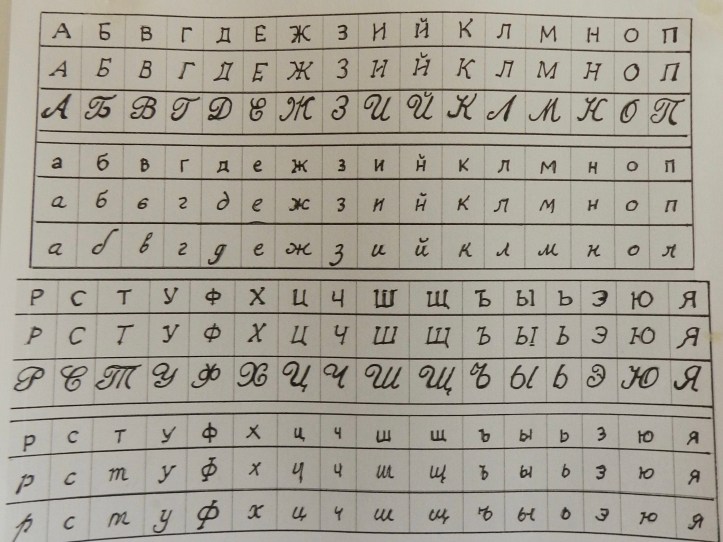 А Б В Г Д Е Ж З И Й К Л М Н О П
А Б В Г Д Е Ж З И Й К Л М Н О П
А Б В Г Д Е Ж З И Й К Л М Н О П
а б в г д е ж з и й к л м н о п
а б в г д е ж з и й к л м н о п
а б в г д е ж з и й к л м н о п
Р С Т У Ф Х Ц Ч Ш Щ Ъ Ы Ь Э Ю Я
Р С Т У Ф Х Ц Ч Ш Щ Ъ Ы Ь Э Ю Я
Р С Т У Ф Х Ц Ч Ш Щ Ъ Ы Ь Э Ю Я
р с т у ф х ц ч ш щ ъ ы ь э ю я
р с т у ф х ц ч ш щ ъ ы ь э ю я
р с т у ф х ц ч ш щ ъ ы ь э ю я